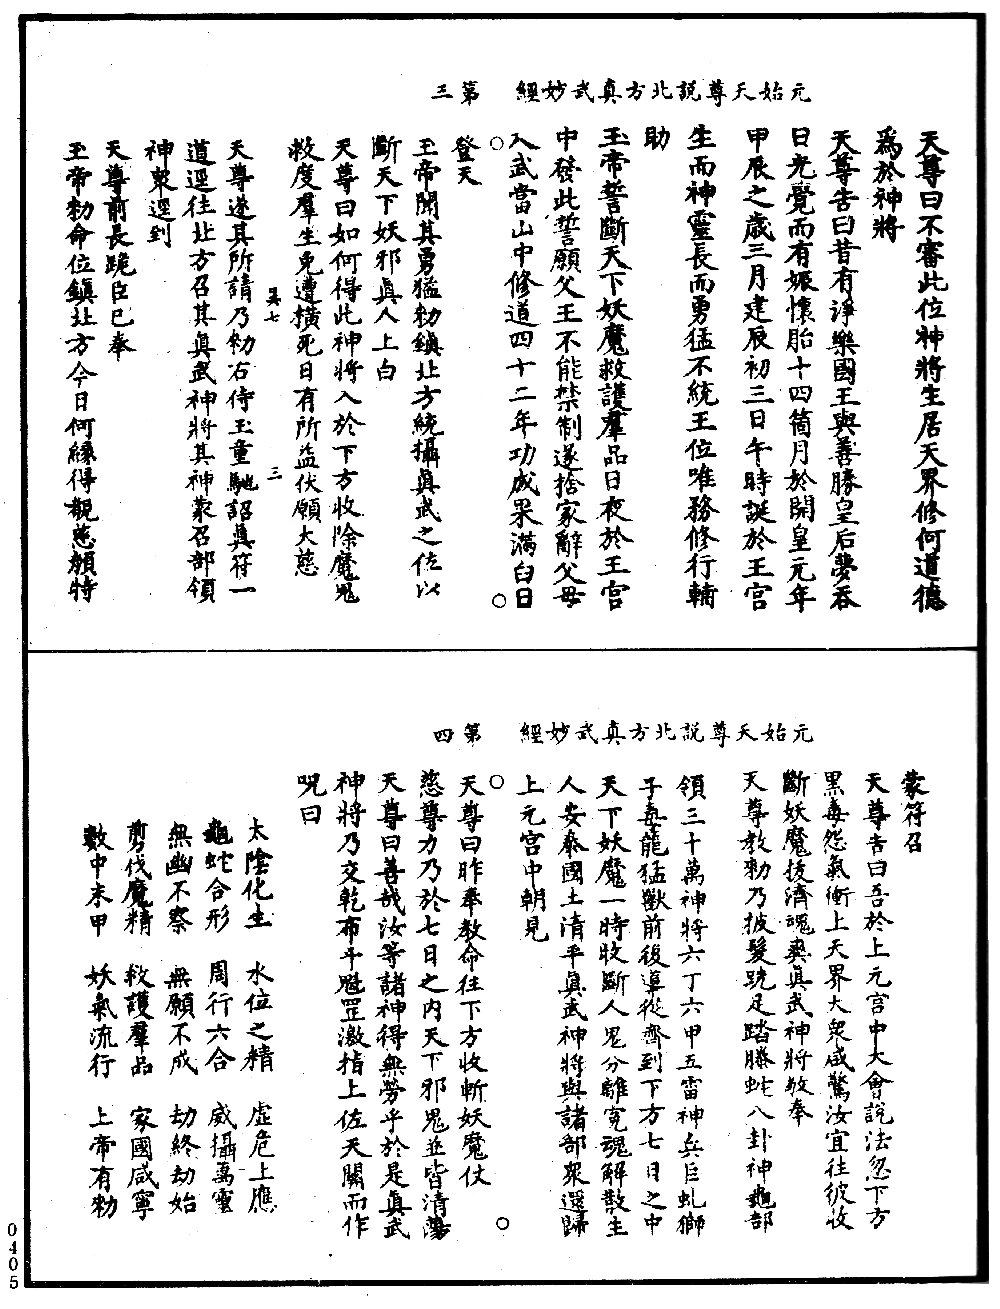 元始天尊說北方真武妙經　第三
天尊曰不審此位神將生居天界修何道德
爲於神將
天尊告曰昔有淨樂國王與善勝皇后夢吞
日光覺而有娠懷胎十四箇月於開皇元年
甲辰之歲三月建辰初三日午時誕於王宮
生而神靈長而勇猛不統王位唯務修行輔
助
玉帝誓斷天下妖魔救護羣品日夜於王宮
中發此誓願父王不能禁制遂捨家辭父母
入武當山中修道四十二年功成果滿白日
登天
玉帝聞其勇猛勑鎮北方統攝真武之位以
斷天下妖邪真人上白
天尊曰如何得此神將入於下方收除魔鬼
救度羣生免遭橫死日有所益伏願大慈
三
天尊遂其所請乃勑右侍玉童馳詔真符一
道逕往北方召其真武神將其神蒙召部領
神衆逕到
天尊前長跪臣已奉
玉帝勑命位鎮北方今日何緣得覩慈顏特
元始天尊說北方真武妙經　第四
蒙符召
天尊告曰吾於上元宮中大會說法忽下方
黑毒怨氣衝上天界大衆咸驚汝宜往彼收
斷妖魔後濟魂爽真武神將敬奉
天尊教勑乃披髮跣足踏騰蛇八卦神龜部
領三十萬神將六丁六甲五雷神兵巨虬獅
子毒龍猛獸前後導從齊到下方七日之中
天下妖魔一時收斷人鬼分離冤魂解散生
人安泰國土清平真武神將與諸部衆還歸
上元宮中朝見
天尊曰昨奉教命往下方收斬妖魔仗
慈尊力乃於七日之內天下邪鬼並皆清蕩
天尊曰善哉汝等諸神得無勞乎於是真武
神將乃交乾布斗魁罡激指上佐天關而作
呪曰
太陰化生　水位之精　虛危上應
龜蛇合形　周行六合　威攝萬靈
無幽不察　無願不成　劫終劫始
剪伐魔精　救護羣品　家國咸寧
數中末甲　妖氣流行　上帝有勑
0405